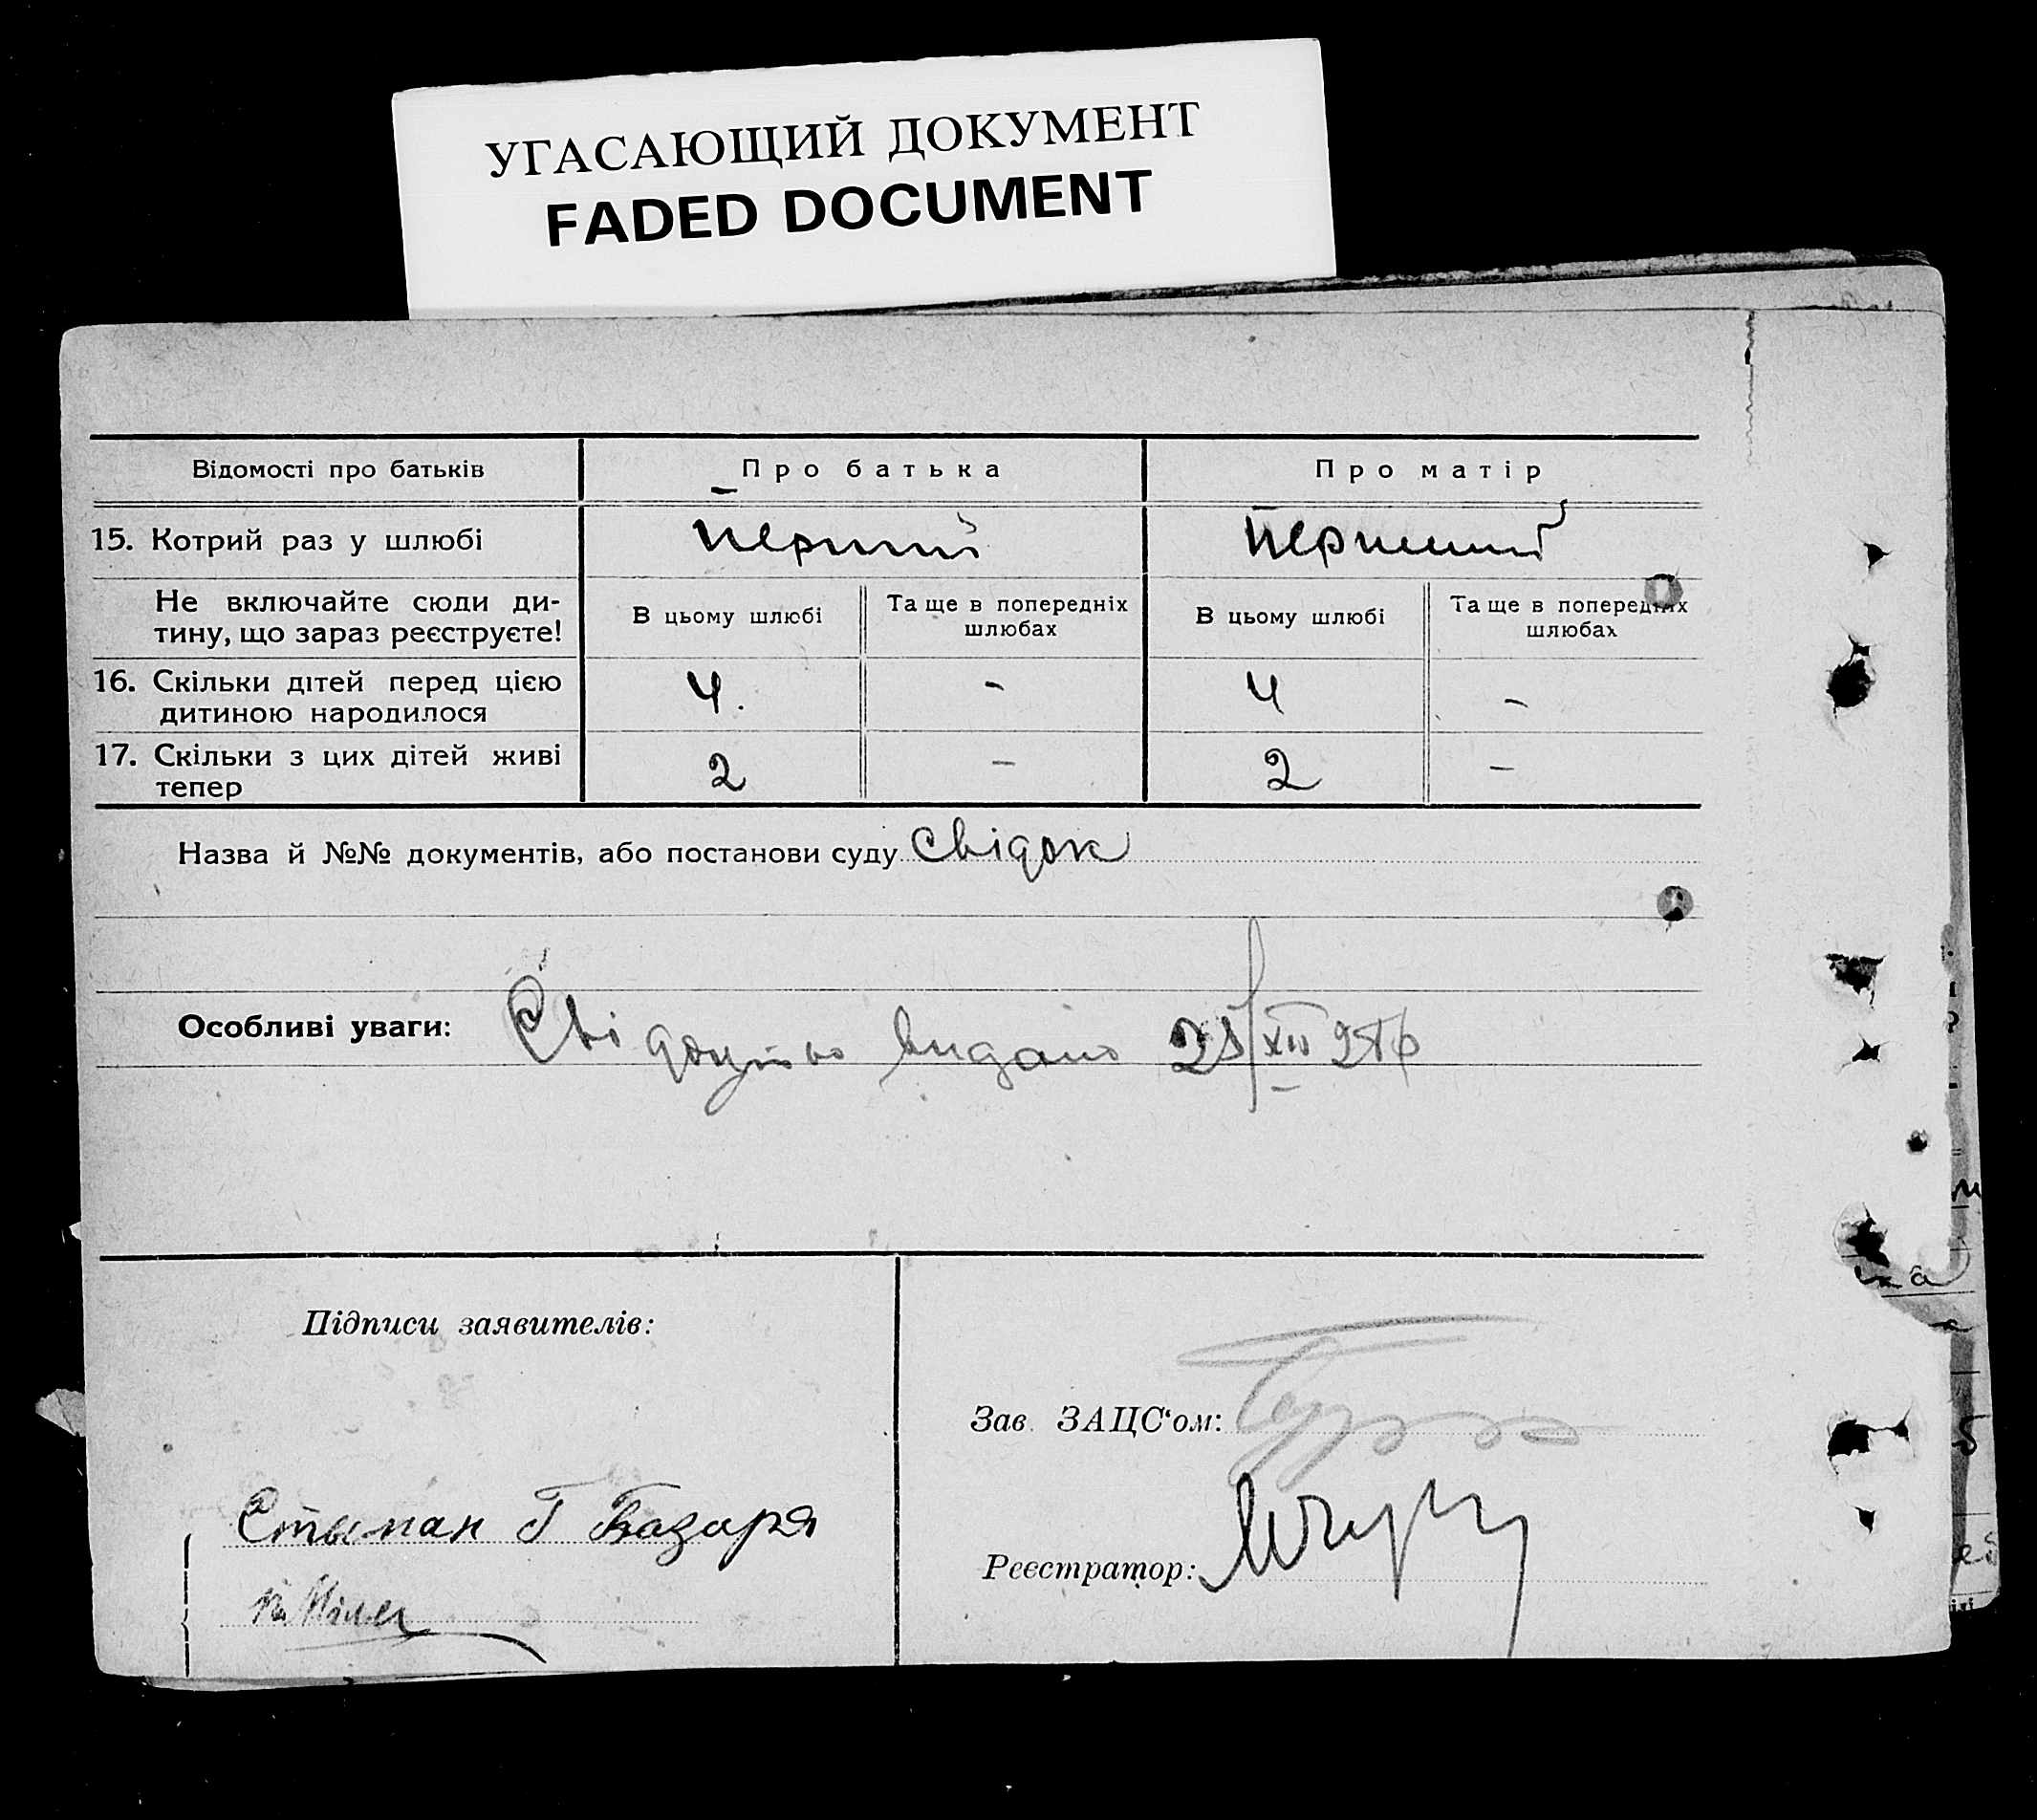 УГАСАЮЩИЙ ДОКУМЕНТ
FADED DOCUMENT
Відомості про батьків
Про батька
Про матір
15. Котрий раз у шлюбі
перший
перший
Не включайте сюди ди-
тину, що зараз реєструєте!
В цьому шлюбі
Та ще в попередніх
шлюбах
В цьому шлюбі
Та ще в попередніх
шлюбах
16. Скільки дітей перед цією
дитиною народилося
4.
-
4
-
17. Скільки з цих дітей живі
тепер
2
-
2
-
Назва й №№ документів, або постанови суду свідок
Особливі уваги: Свідоцтво видано
Підписи заявителів:
Зав. ЗАЦС‘ом:
Стыпан Г Базаря
Реєстратор: